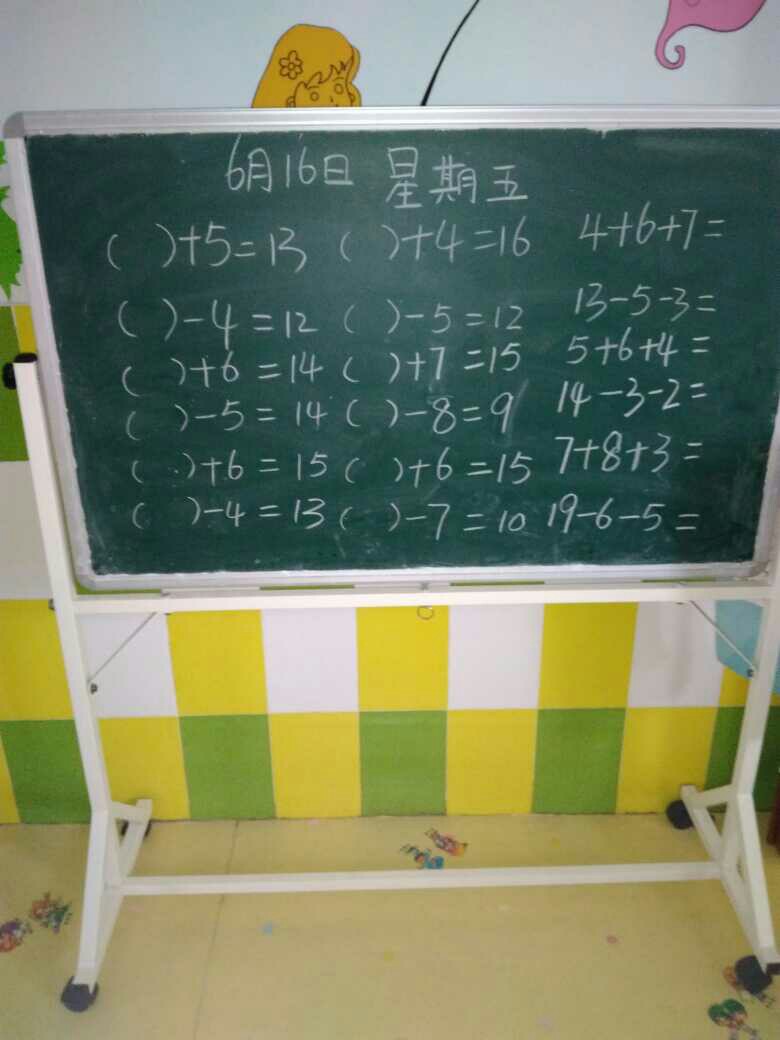 6月16日 星期五
( )+5=13 ( )+4=16 4+6+7=
( )-4=12 ( )-5=12 13-5-3=
( )+6=14 ( )+7=15 5+6+4=
( )-5=14 ( )-8=9 14-3-2=
( )+6=15 ( )+6=15 7+8+3=
( )-4=13 ( )-7=10 19-6-5=